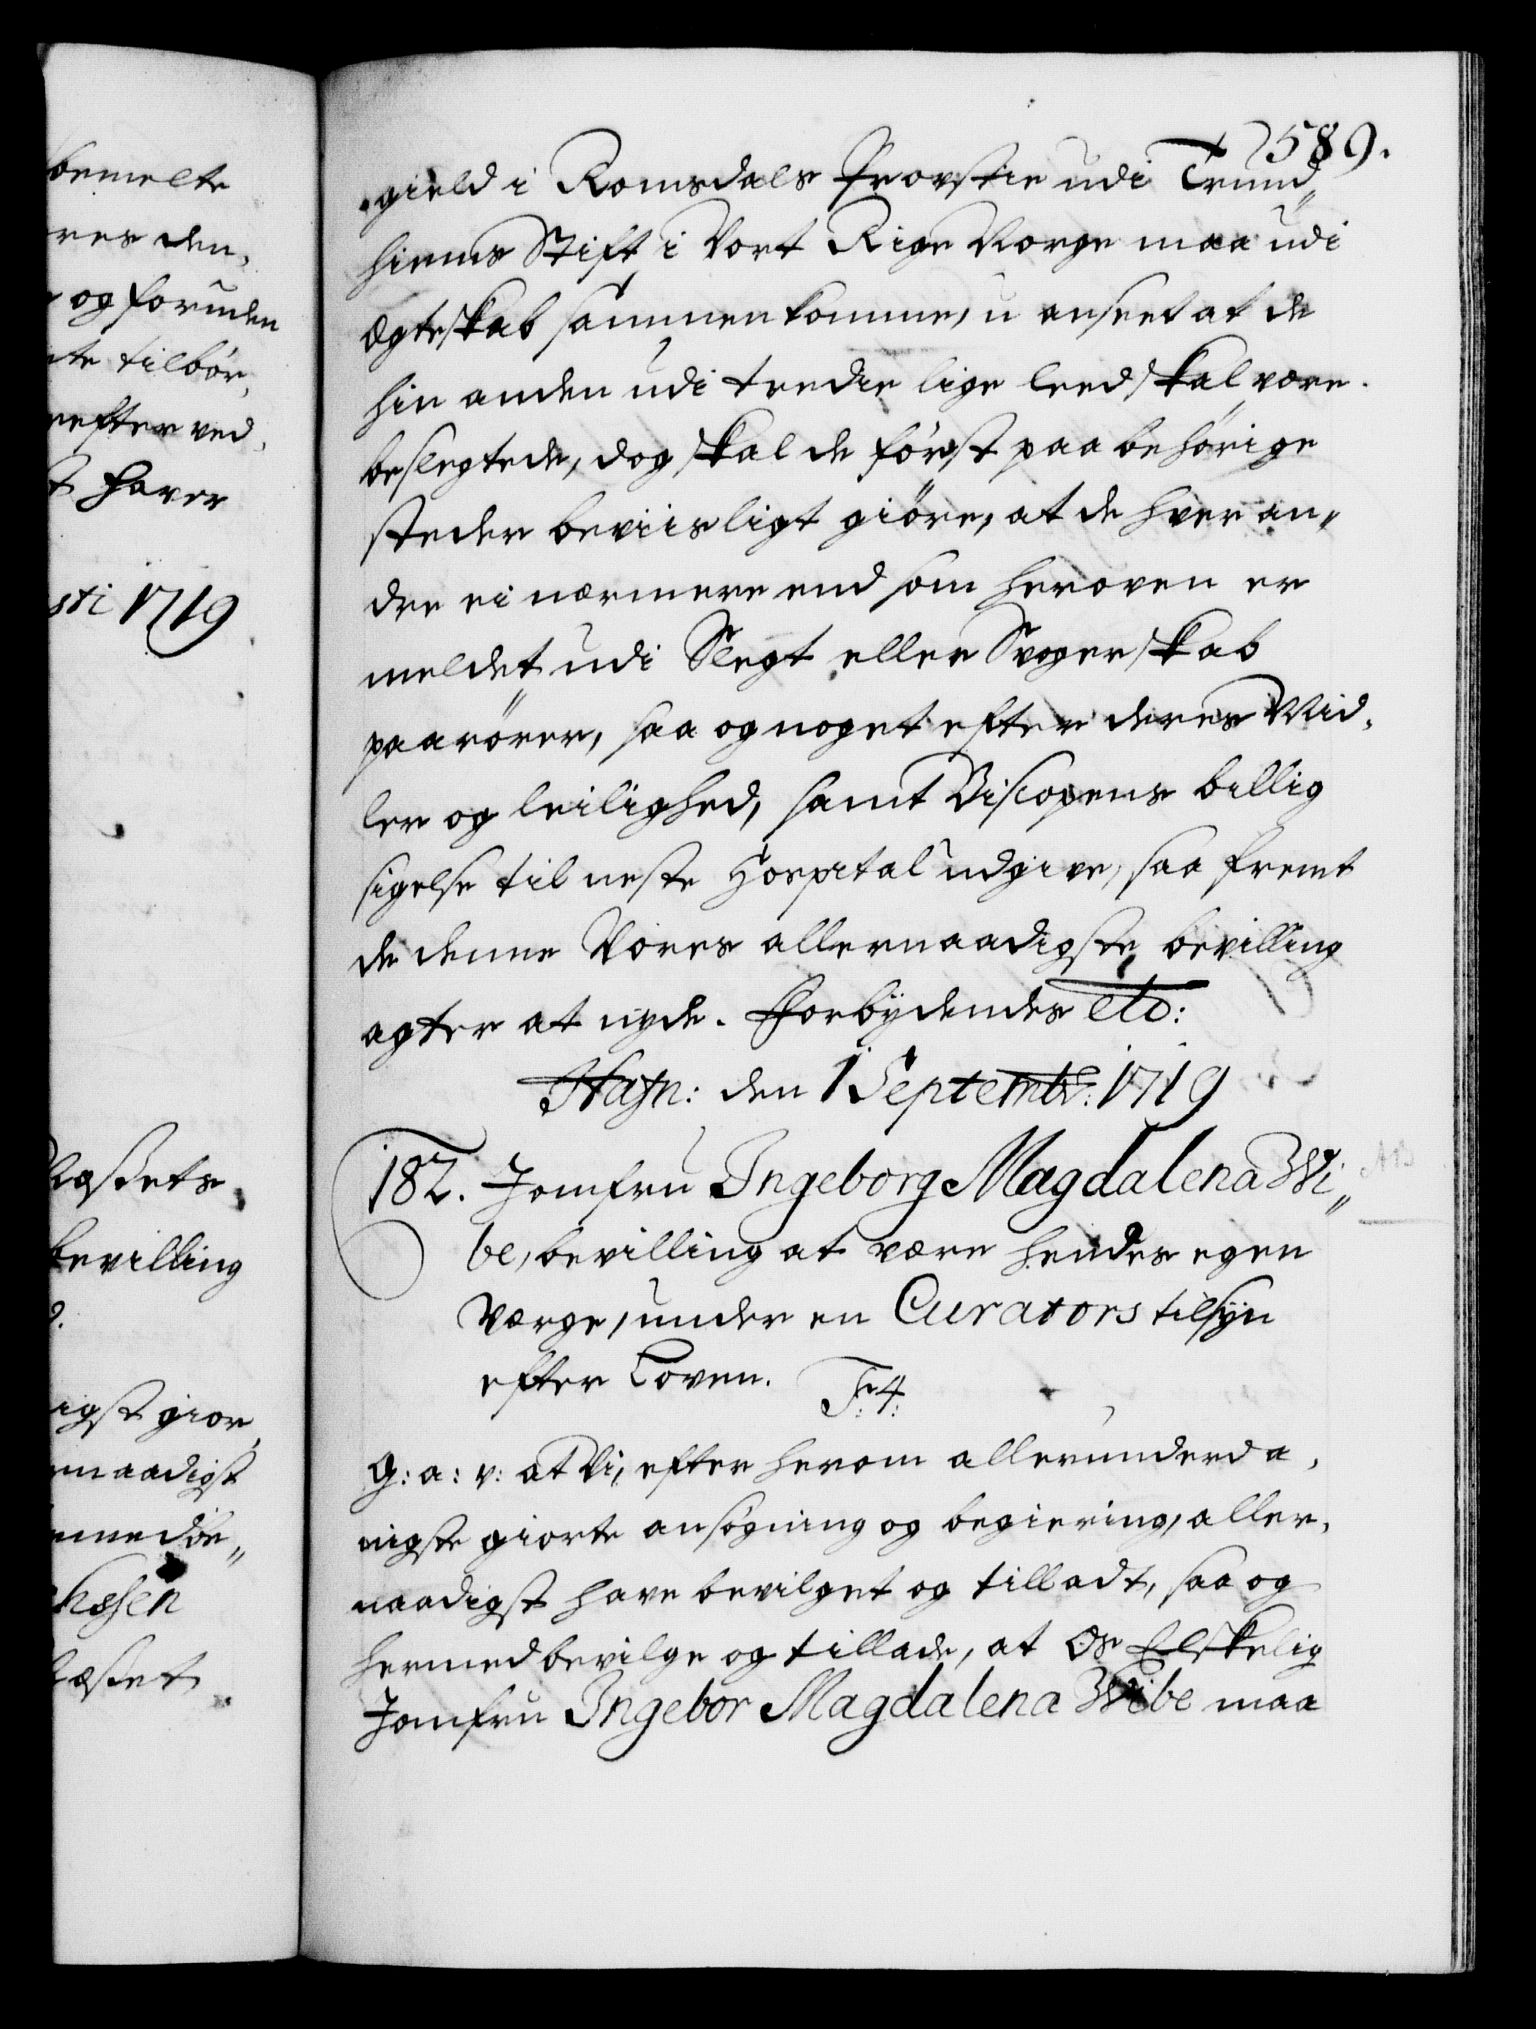 bemelte
res den,
og foruden
te tilbør,
efter ved,
t haver
sti 1719
læsets
bevilling
igst gior,
naadigst
589.
gield i Romsdals Provstie udi Trund„
hiems Stift i Vort Rige Norge maa udi
Ægteskab sammenkomme, u anseet at de
hin anden udi tredie lige leed skal være
beslegtede, dog skal de først paa behörige
steder beviisligt giöre, at de hver an„
dre ei nærmere end som heroven er
meldet udi Slegt eller Svogerskab
paarörer, saa og noget efter deres Mid,
ler og leilighed, samt Biscopens billig
sigelse til neste Hospital udgive, saa fremt
de denne Vores allernaadigste bevilling
agter at nyde. Forbydendes etc:
Hafn: den 1 Septembr: 1719
182. Jomfru Ingeborg Magdalena Wi„
be, bevilling at være hendes egen
Værge, under en Curators tilsyn
efter Loven. F: 4:
G: a: v: at Vi, efter herom allerunderda,
nigste giorte ansøgning og begiering, aller,
naadigst have bevilget og tilladt, saa og
hermed bevilge og tillade, at Os Elskelig
Jomfru Ingebor Magdalena Wibe maa